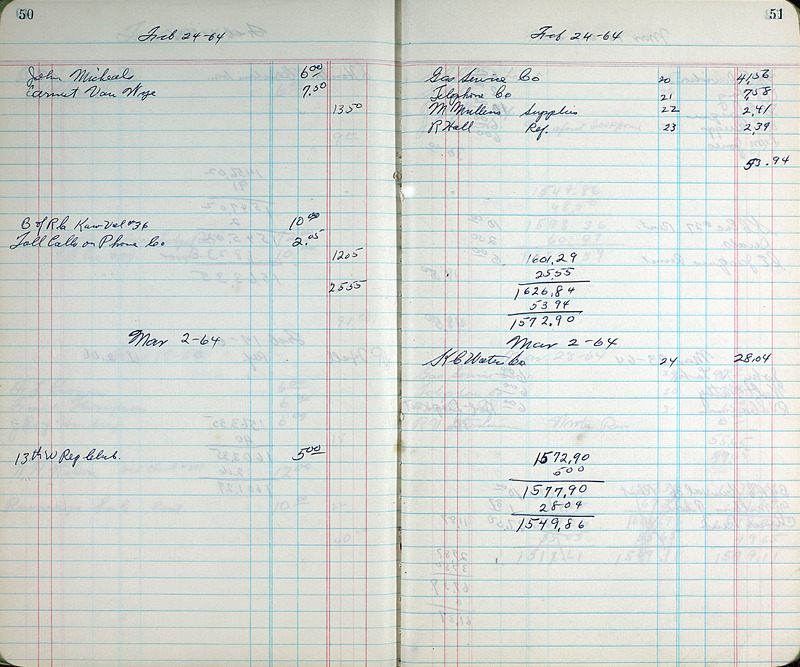 50
Feb 24-64
John Micheals 6 00
Earnest Van Wye 7.50
13 50
B of R La Kaw Val #36 10 00
Toll Calls on Phone Co 2.05
12 05
25 55
Mar 2-64
13th W Rep Club. 5 00
51
Feb 24-64
Gas Service Co 20 41,56
Telephone Co 21 7,58
McMullens Supplies 22 2,41
R Hall Ref. 23 2,39
53.94
1601,29
25.55
1626,84
53 94
1572,90
Mar 2-64
K C Water Co 24 28.04
1572,90
5 00
1577,90
28 04
1549,86